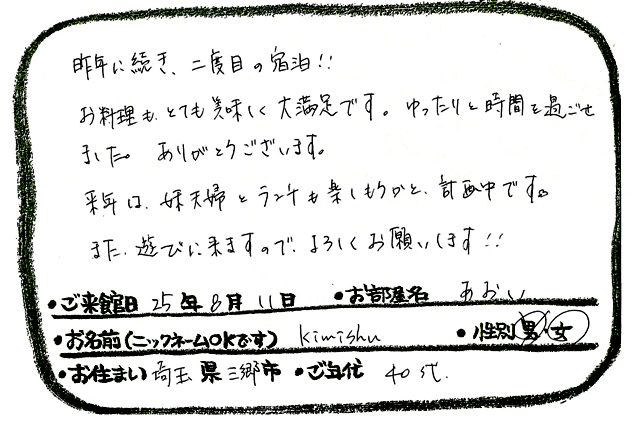 昨年に続き、二度目の宿泊!!
お料理も、とても美味しく大満足です。ゆったりと時間を過ごせ
ました。ありがとうございます。
来年は、妹夫婦とランチも楽しもうかと、計画中です。
また、遊びに来ますので、よろしくお願いします!!
・ご来館日 25年8月11日 ・お部屋名 あおい
・お名前(ニックネームOKです) kimishu ・性別 男・女
・お住まい 埼玉県三郷市 ・ご年代 40代.